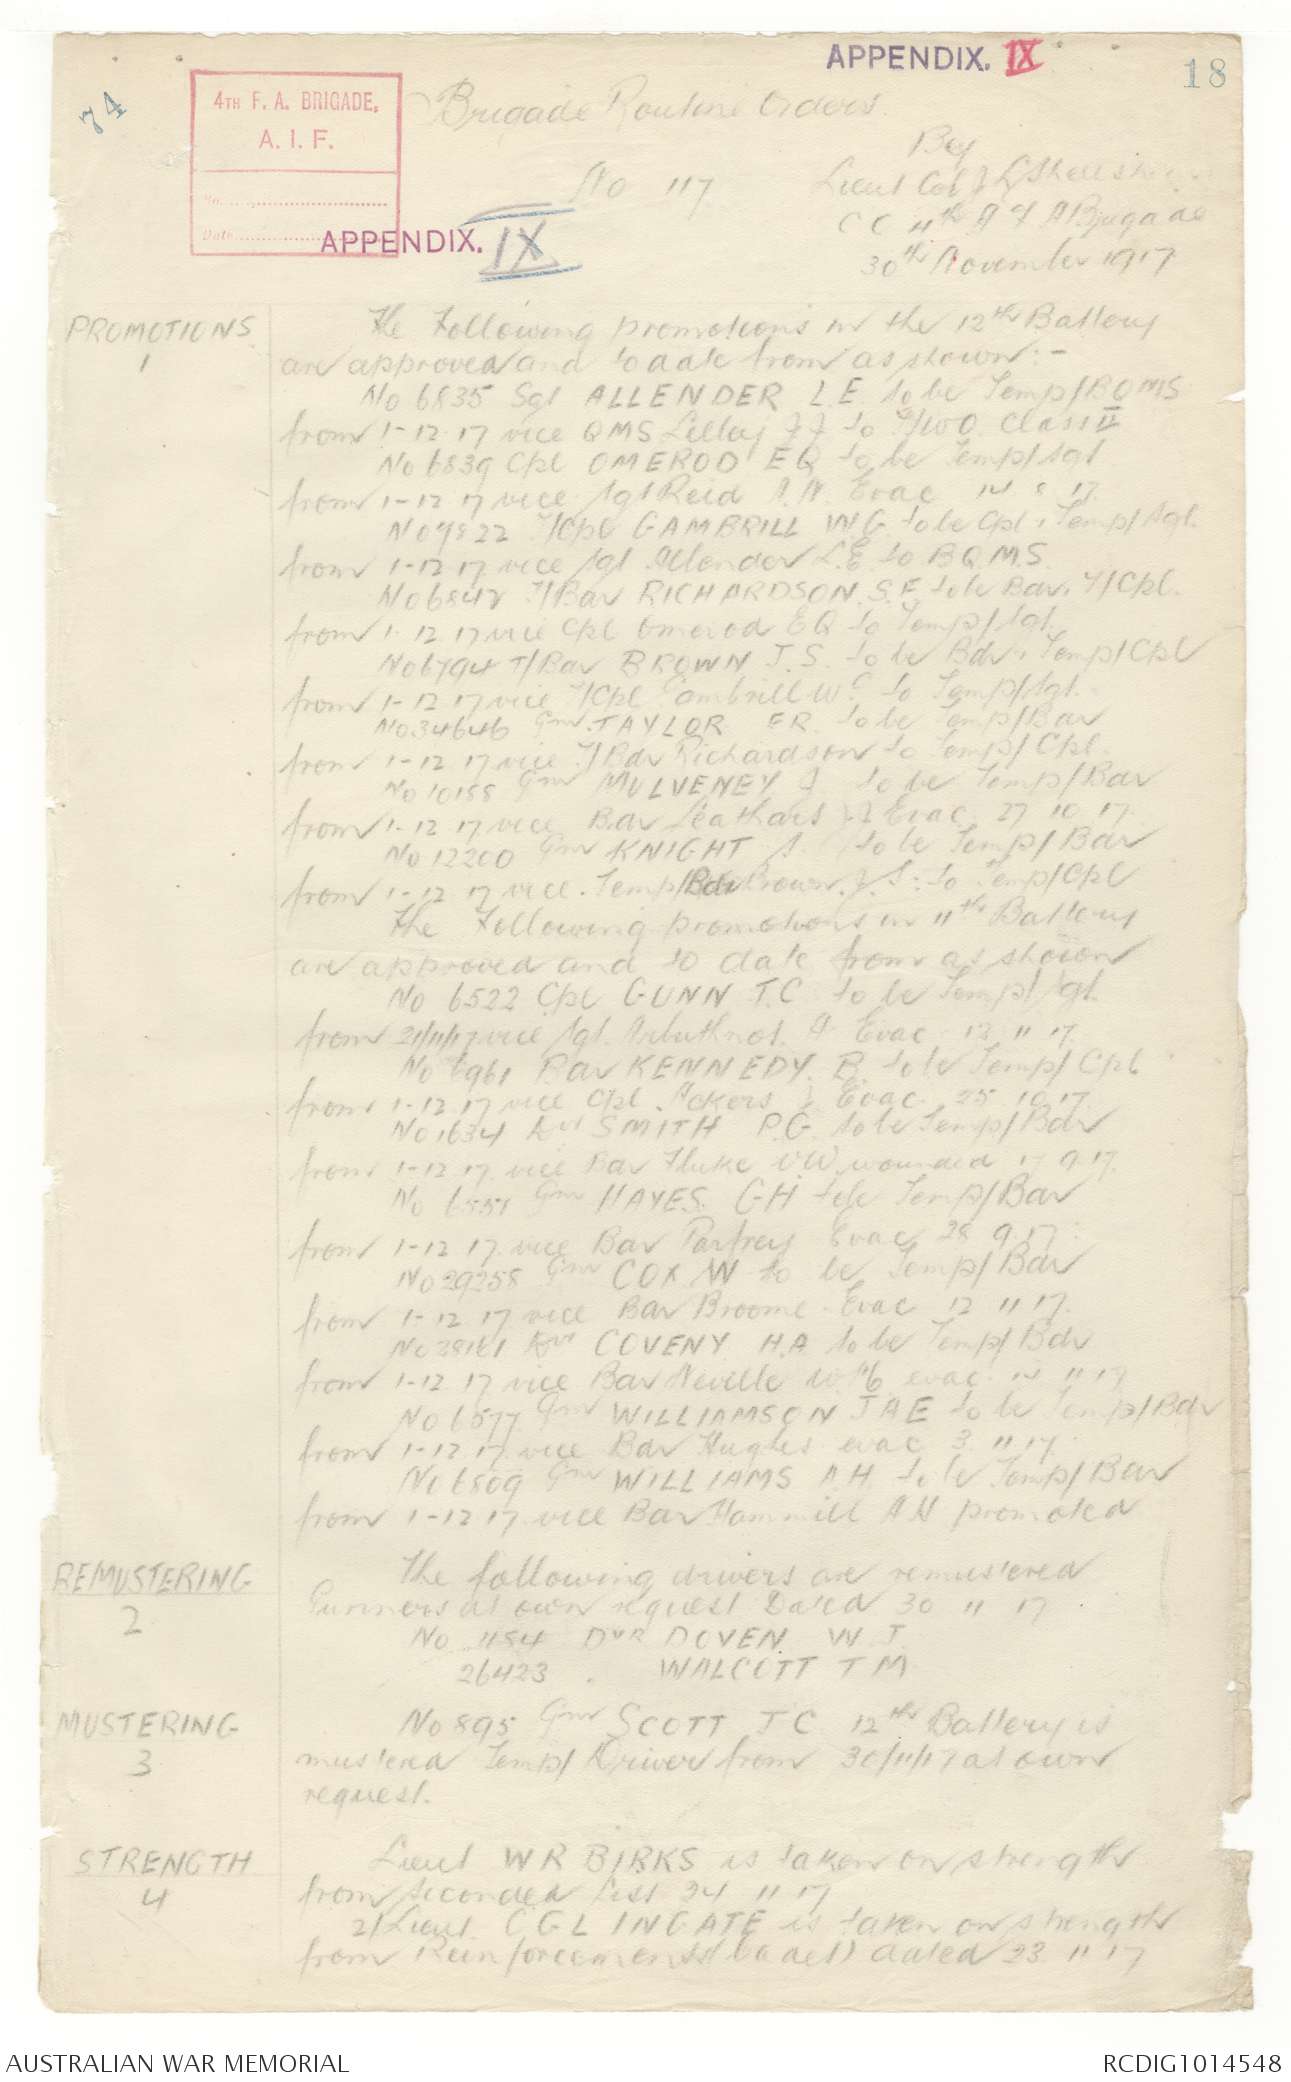 APPENDIX. IX
18
74
4TH F. A. BRIGADE,
A. I. F.
No.
Date
APPENDIX. IX
Brigade Routine Orders
No 117
By
Lieut Col
CC 4th A F A Brigade
30th November 1917
PROMOTIONS
1
The Following promotions in the 12th Battery
are approved and to date from as shown:-
No 6835 Sgt ALLENDER L.E. to be Temp/BQMS
from 1-12 17 vice QMS Lilley JJ to T/WO Class II
No 6839 Cpl OMEROD EQ to be Temp/Sgt
from 1-12 17 vice Sgt Reid Evac 14 8 17.
T/Cpl GAMBRILL W.G. to be Cpl & Temp/Sgt.
from 1-12 17 vice Sgt Allender L.E. to BQMS.
T/Bdr RICHARDSON. S.F. to be Bdr & T/Cpl.
from 1-12.17 vice Cpl Omerod EQ to Temp/Sgt.
No 6794 T/Bdr BROWN J.S. to be Bdr & Temp/Cpl
from 1-12 17 vice T/Cpl Gambrill W G to Temp/Sgt.
No 34646 Gnr. TAYLOR ER. to be Temp/Bdr
from 1-12 17 vice T/Bdr Richardson to Temp/Cpl.
No 10188 Gnr MULVENEY J to be Temp/Bdr
from 1-12 17 vice Bdr Evac 27 10 17.
No 12200 Gnr KNIGHT to be Temp/Bdr
from 1-12 17 vice. Temp/Bdr Brown. J.S. to Temp/Cpl
The Following promotions in 11th Battery
are approved and to date from as shown
No 6522 Cpl GUNN T.C to be Temp/Sgt.
from 21/11/17 vice Sgt. Arbuthnot. Evac 17.
No 6961 Bdr KENNEDY. B. to be Temp/Cpl
from 1-12.17 vice Cpl Ackers J Evac 25 10 17
No 1634 Dvr SMITH P.G. to be Temp/Bdr
from 1-12 17. vice Bdr Fluke wounded 17 9 17.
No 6551 Gnr HAYES. GH to be Temp/Bdr
from 1-12 17. vice Bdr Parfrey Evac 28 9.17.
No 29258 Gnr COX W to be Temp/Bdr
from 1-12 17 vice Bdr Broome Evac 12 11 17.
Dvr COVENY H.A to be Temp/Bdr
from 1-12 17 vice Bdr Neville evac. 14 11 17
No 6577 Gnr WILLIAMSON JAE to be Temp/Bdr
from 1-12 17. vice Bdr Hughes evac 3. 11 17.
No 6809 Gnr WILLIAMS A.H. to be Temp/Bdr
from 1-12 17. vice Bdr Hammill promoted
REMUSTERING
2
The following drivers are remustered
Gunners at own request Dated 30 11 17
No 1184 DVR DOVEN W J.
26423 . WALCOTT T M
MUSTERING
3
No 895 Gnr SCOTT J C 12th Battery is
mustered Temp/Driver from 30/11/17 at own
request.
STRENGTH
4
Lieut W R BIRKS is taken on strength
from Seconded List 24 11 17
2/Lieut C G L INGATE is taken on strength
from Reinforcements (Cadet) dated 23 11 17
AUSTRALIAN WAR MEMORIAL
RCDIG1014548